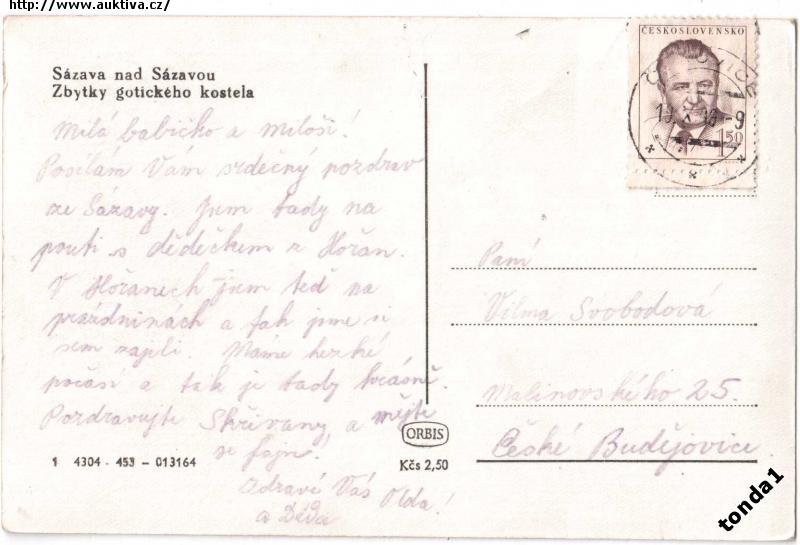 http://www.auktiva.cz/
ČESKOSLOVENSKO
1,50
Sázava nad Sázavou
Zbytky gotického kostela
Milá babičko a Miloši!
Posílám Vám srdečný pozdrav
ze Sázavy. Jsem tady na
pouti s dědečkem z Hořan.
V Hořanech jsem teď na
prázdninách a tak jsme si
sem zajeli. Máme hezké
počasí a tak je tady krásně.
Pozdravujte Skřivany a mějte
se fajn!
Zdraví Vás Olda!
a Děda
Paní
Vilma Svobodová
Malinovského 25.
České Budějovice
ORBIS
1 4304 - 453 - 013164
Kčs 2,50
tonda1